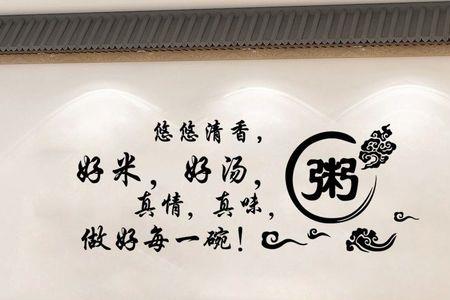 悠悠清香，
好米，好汤，
真情，真味，
做好每一碗！
粥